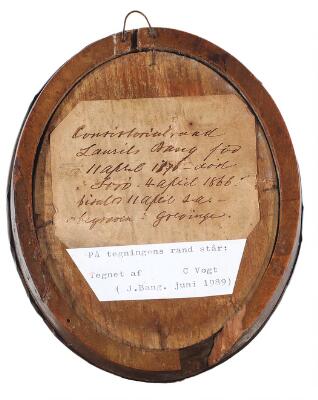 Consistorialraad
Laurits Bang fød
11 April 1876 - død
i Sorø 4 April 1866
11 April s a
begraven i Grevinge.
På tegningens rand står:
Tegnet af C Vogt
( J.Bang. juni 1989)